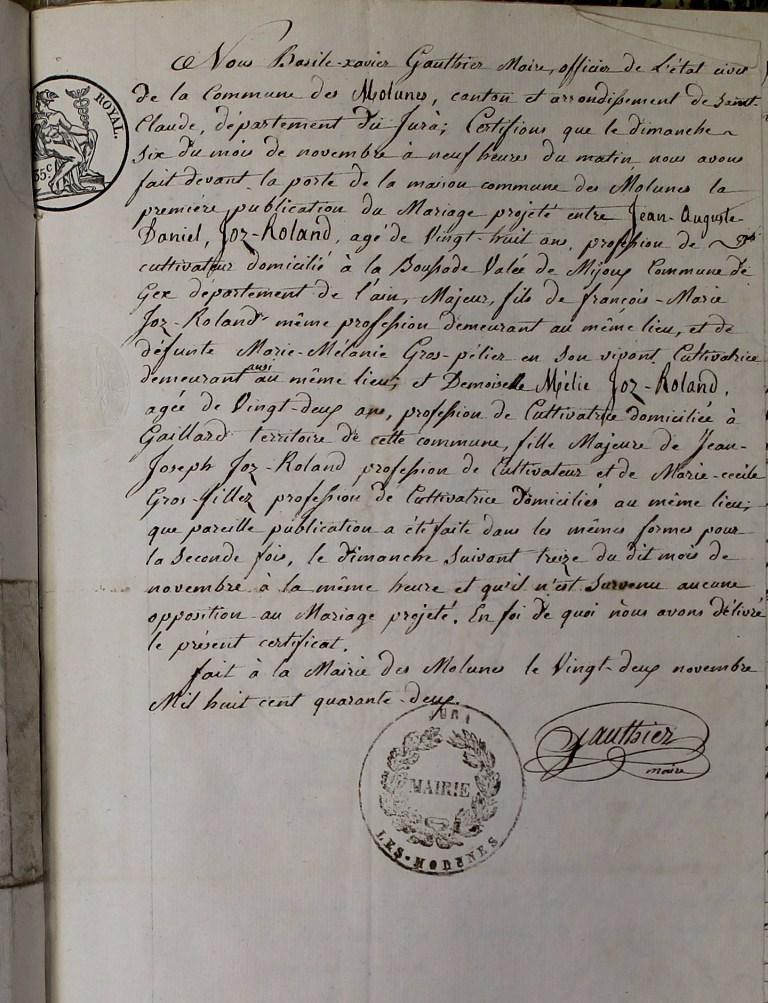 Nous Basile-xavier Gauthier Maire, officier de L'état civil
de la Commune des Molunes, canton et arrondissement de Saint
Claude, département du Jura; Certifions que le dimanche
six du mois de novembre à neuf heures du matin nous avons
fait devant la porte de la maison commune des Molunes la
première publication du Mariage projeté entre Jean-Auguste-
Daniel, Joz-Roland, agé de Vingt-huit ans, profession de
cultivateur domicilié à la Boussode Valée de Mijoux Commune de
Gex département de l'ain, Majeur, fils de françois-Marie
Joz-Roland même profession demeurant au même lieu, et de
défunte Marie-Mélanie Gros-pélier en son vivant Cultivatrice
demeurant aussi au même lieu; et Demoiselle Mélie Joz-Roland,
agée de Vingt-deux ans, profession de Cultivatrice domiciliée à
Gaillard territoire de cette commune, fille Majeure de Jean-
Joseph Joz-Roland profession de Cultivateur et de Marie-cecile
Gros-fillez profession de Cultivatrice Domiciliés au même lieu;
que pareille publication a été faite dans les mêmes formes pour
la Seconde fois, le dimanche suivant treize du dit mois de
novembre à la même heure et qu'il n'est Survenu aucune
opposition au Mariage projeté. En foi de quoi nous avons délivré
le présent certificat.
fait à la Mairie des Molunes le Vingt-deux novembre
Mil huit cent quarante-deux.
Gauthier
maire
ROYAL.
35c
JURA
MAIRIE
LES-MOLUNES